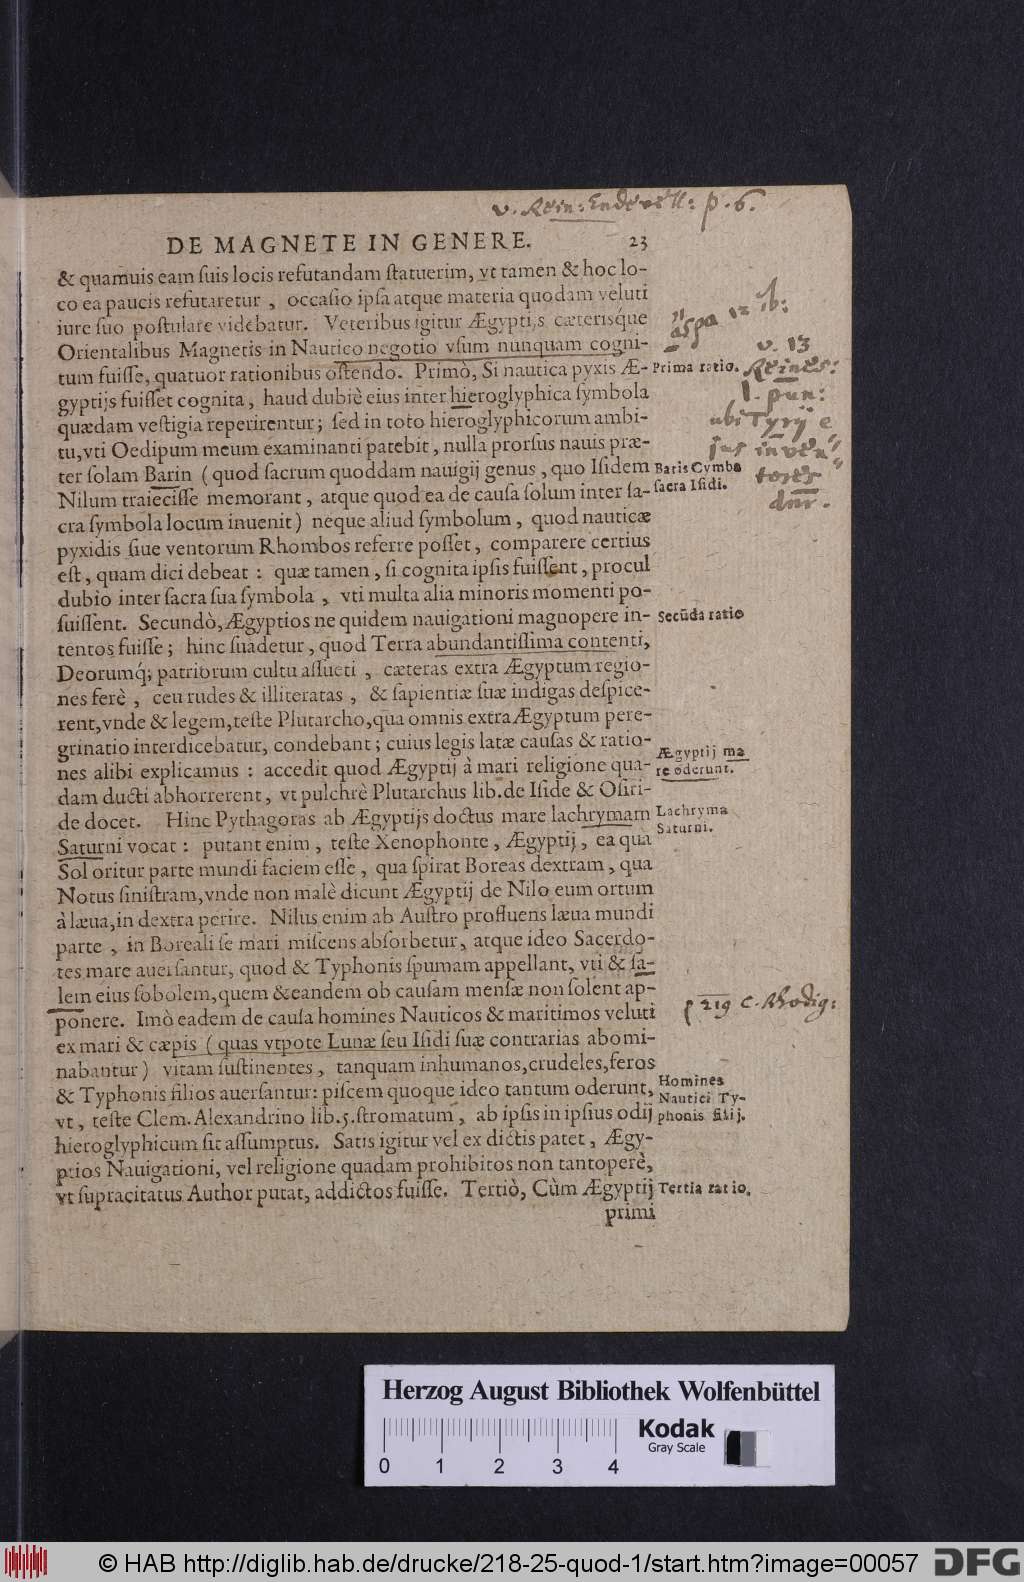 v. Rein: p. 6.
DE MAGNETE IN GENERE. 23
& quamuis eam ſuis locis refutandam ſtatuerim, vt tamen & hoc lo-
co ea paucis refutaretur , occaſio ipſa atque materia quodam veluti
iure ſuo poſtulare videbatur. Veteribus igitur Ægyptijs cæteriſque
Orientalibus Magnetis in Nautico negotio vſum nunquam cogni-
tum fuiſſe, quatuor rationibus oſtendo. Primò, Si nautica pyxis Æ-
gyptijs fuiſſet cognita, haud dubiè eius inter hieroglyphica ſymbola
quædam veſtigia reperirentur; ſed in toto hieroglyphicorum ambi-
tu, vti Oedipum meum examinanti patebit, nulla prorſus nauis præ-
ter ſolam Barin (quod ſacrum quoddam nauigij genus, quo Iſidem
Nilum traieciſſe memorant, atque quod ea de cauſa ſolum inter ſa-
cra ſymbola locum inuenit) neque aliud ſymbolum, quod nauticæ
pyxidis ſiue ventorum Rhombos referre poſſet, comparere certius
eſt, quam dici debeat : quæ tamen, ſi cognita ipſis fuiſſent, procul
dubio inter ſacra ſua ſymbola , vti multa alia minoris momenti po-
ſuiſſent. Secundò, Ægyptios ne quidem nauigationi magnopere in-
tentos fuiſſe ; hinc ſuadetur, quod Terra abundantiſſima contenti,
Deorumq́; patriorum cultu aſſueti , cæteras extra Ægyptum regio-
nes ferè , ceu rudes & illiteratas , & ſapientiæ ſuæ indigas deſpice-
rent, vnde & legem, teſte Plutarcho, qua omnis extra Ægyptum pere-
grinatio interdicebatur, condebant ; cuius legis latæ cauſas & ratio-
nes alibi explicamus : accedit quod Ægyptij à mari religione qua-
dam ducti abhorrerent, vt pulchrè Plutarchus lib. de Iſide & Oſiri-
de docet. Hinc Pythagoras ab Ægyptijs doctus mare lachrymam
Saturni vocat : putant enim , teſte Xenophonte, Ægyptij, ea qua
Sol oritur parte mundi faciem eſſe , qua ſpirat Boreas dextram , qua
Notus ſiniſtram, vnde non malè dicunt Ægyptij de Nilo eum ortum
à læua, in dextra perire. Nilus enim ab Auſtro profluens læua mundi
parte , in Boreali ſe mari miſcens abſorbetur, atque ideo Sacerdo-
tes mare auerſantur, quod & Typhonis ſpumam appellant, vti & ſa-
lem eius ſobolem, quem & eandem ob cauſam menſæ non ſolent ap-
ponere. Imò eadem de cauſa homines Nauticos & maritimos veluti
ex mari & cæpis (quas vtpote Lunæ ſeu Iſidi ſuæ contrarias abomi-
nabantur) vitam ſuſtinentes, tanquam inhumanos, crudeles, feros
& Typhonis filios auerſantur: piſcem quoque ideo tantum oderunt,
vt, teſte Clem. Alexandrino lib. 5. ſtromatum , ab ipſis in ipſius odij
hieroglyphicum ſit aſſumptus. Satis igitur vel ex dictis patet, Ægy-
ptios Nauigationi, vel religione quadam prohibitos non tantoperè,
vt ſupracitatus Author putat, addictos fuiſſe. Tertiò, Cùm Ægyptij
primi
v. 13
Reines:
l. pun:
ubi Tyrij e
jus inven
tores
dnr.
Prima ratio.
Baris Cymba
ſacra Iſidi.
Secũda ratio
Ægyptij ma
re oderunt.
Lachryma
Saturni.
p 219 C. Rhodig:
Homines
Nautici Ty-
phonis filij.
Tertia ratio.
Herzog August Bibliothek Wolfenbüttel
Kodak
Gray Scale
0 1 2 3 4
© HAB http://diglib.hab.de/drucke/218-25-quod-1/start.htm?image=00057
DFG